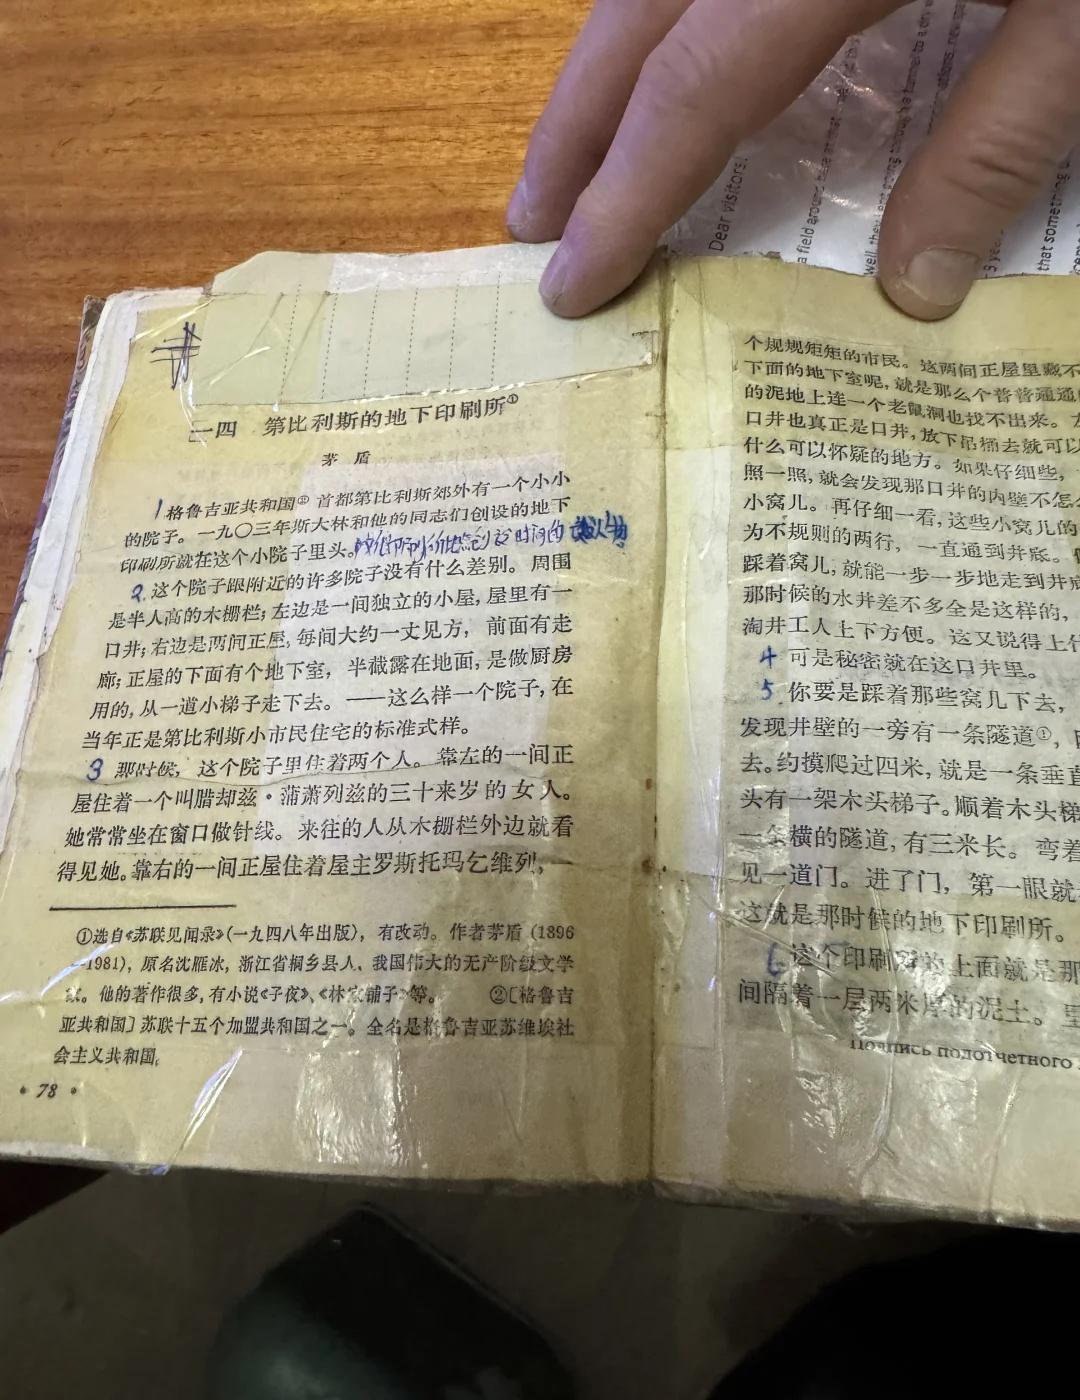 一四 第比利斯的地下印刷所①
茅 盾
1 格鲁吉亚共和国② 首都第比利斯郊外有一个小小
的院子。一九〇三年斯大林和他的同志们创设的地下
印刷所就在这个小院子里头。
2. 这个院子跟附近的许多院子没有什么差别。周围
是半人高的木栅栏;左边是一间独立的小屋,屋里有一
口井;右边是两间正屋,每间大约一丈见方,前面有走
廊;正屋的下面有个地下室,半截露在地面,是做厨房
用的,从一道小梯子走下去。——这么样一个院子,在
当年正是第比利斯小市民住宅的标准式样。
3 那时候,这个院子里住着两个人。靠左的一间正
屋住着一个叫腊却兹·蒲萧列兹的三十来岁的女人。
她常常坐在窗口做针线。来往的人从木栅栏外边就看
得见她。靠右的一间正屋住着屋主罗斯托玛乞维列,
①选自《苏联见闻录》(一九四八年出版),有改动。作者茅盾(1896
—1981),原名沈雁冰,浙江省桐乡县人,我国伟大的无产阶级文学
家。他的著作很多,有小说《子夜》、《林家铺子》等。 ②〔格鲁吉
亚共和国〕苏联十五个加盟共和国之一。全名是格鲁吉亚苏维埃社
会主义共和国。
• 78 •
个规规矩矩的市民。这两间正屋里藏不
下面的地下室呢,就是那么个普普通通
的泥地上连一个老鼠洞也找不出来。
口井也真正是口井,放下吊桶去就可以
什么可以怀疑的地方。如果仔细些,
照一照,就会发现那口井的内壁不怎么
小窝儿。再仔细一看,这些小窝儿的
为不规则的两行,一直通到井底。
踩着窝儿,就能一步一步地走到井底
那时候的水井差不多全是这样的,
淘井工人上下方便。这又说得上什
4 可是秘密就在这口井里。
5 你要是踩着那些窝儿下去,
发现井壁的一旁有一条隧道①,
去。约摸爬过四米,就是一条垂直
头有一架木头梯子。顺着木头梯
一条横的隧道,有三米长。弯着
见一道门。进了门,第一眼就
这就是那时候的地下印刷所。
6 这个印刷所的上面就是那
间隔着一层两米厚的泥土。
Подпись подотчетного
Dear visitors!
a field around
well, they
that something